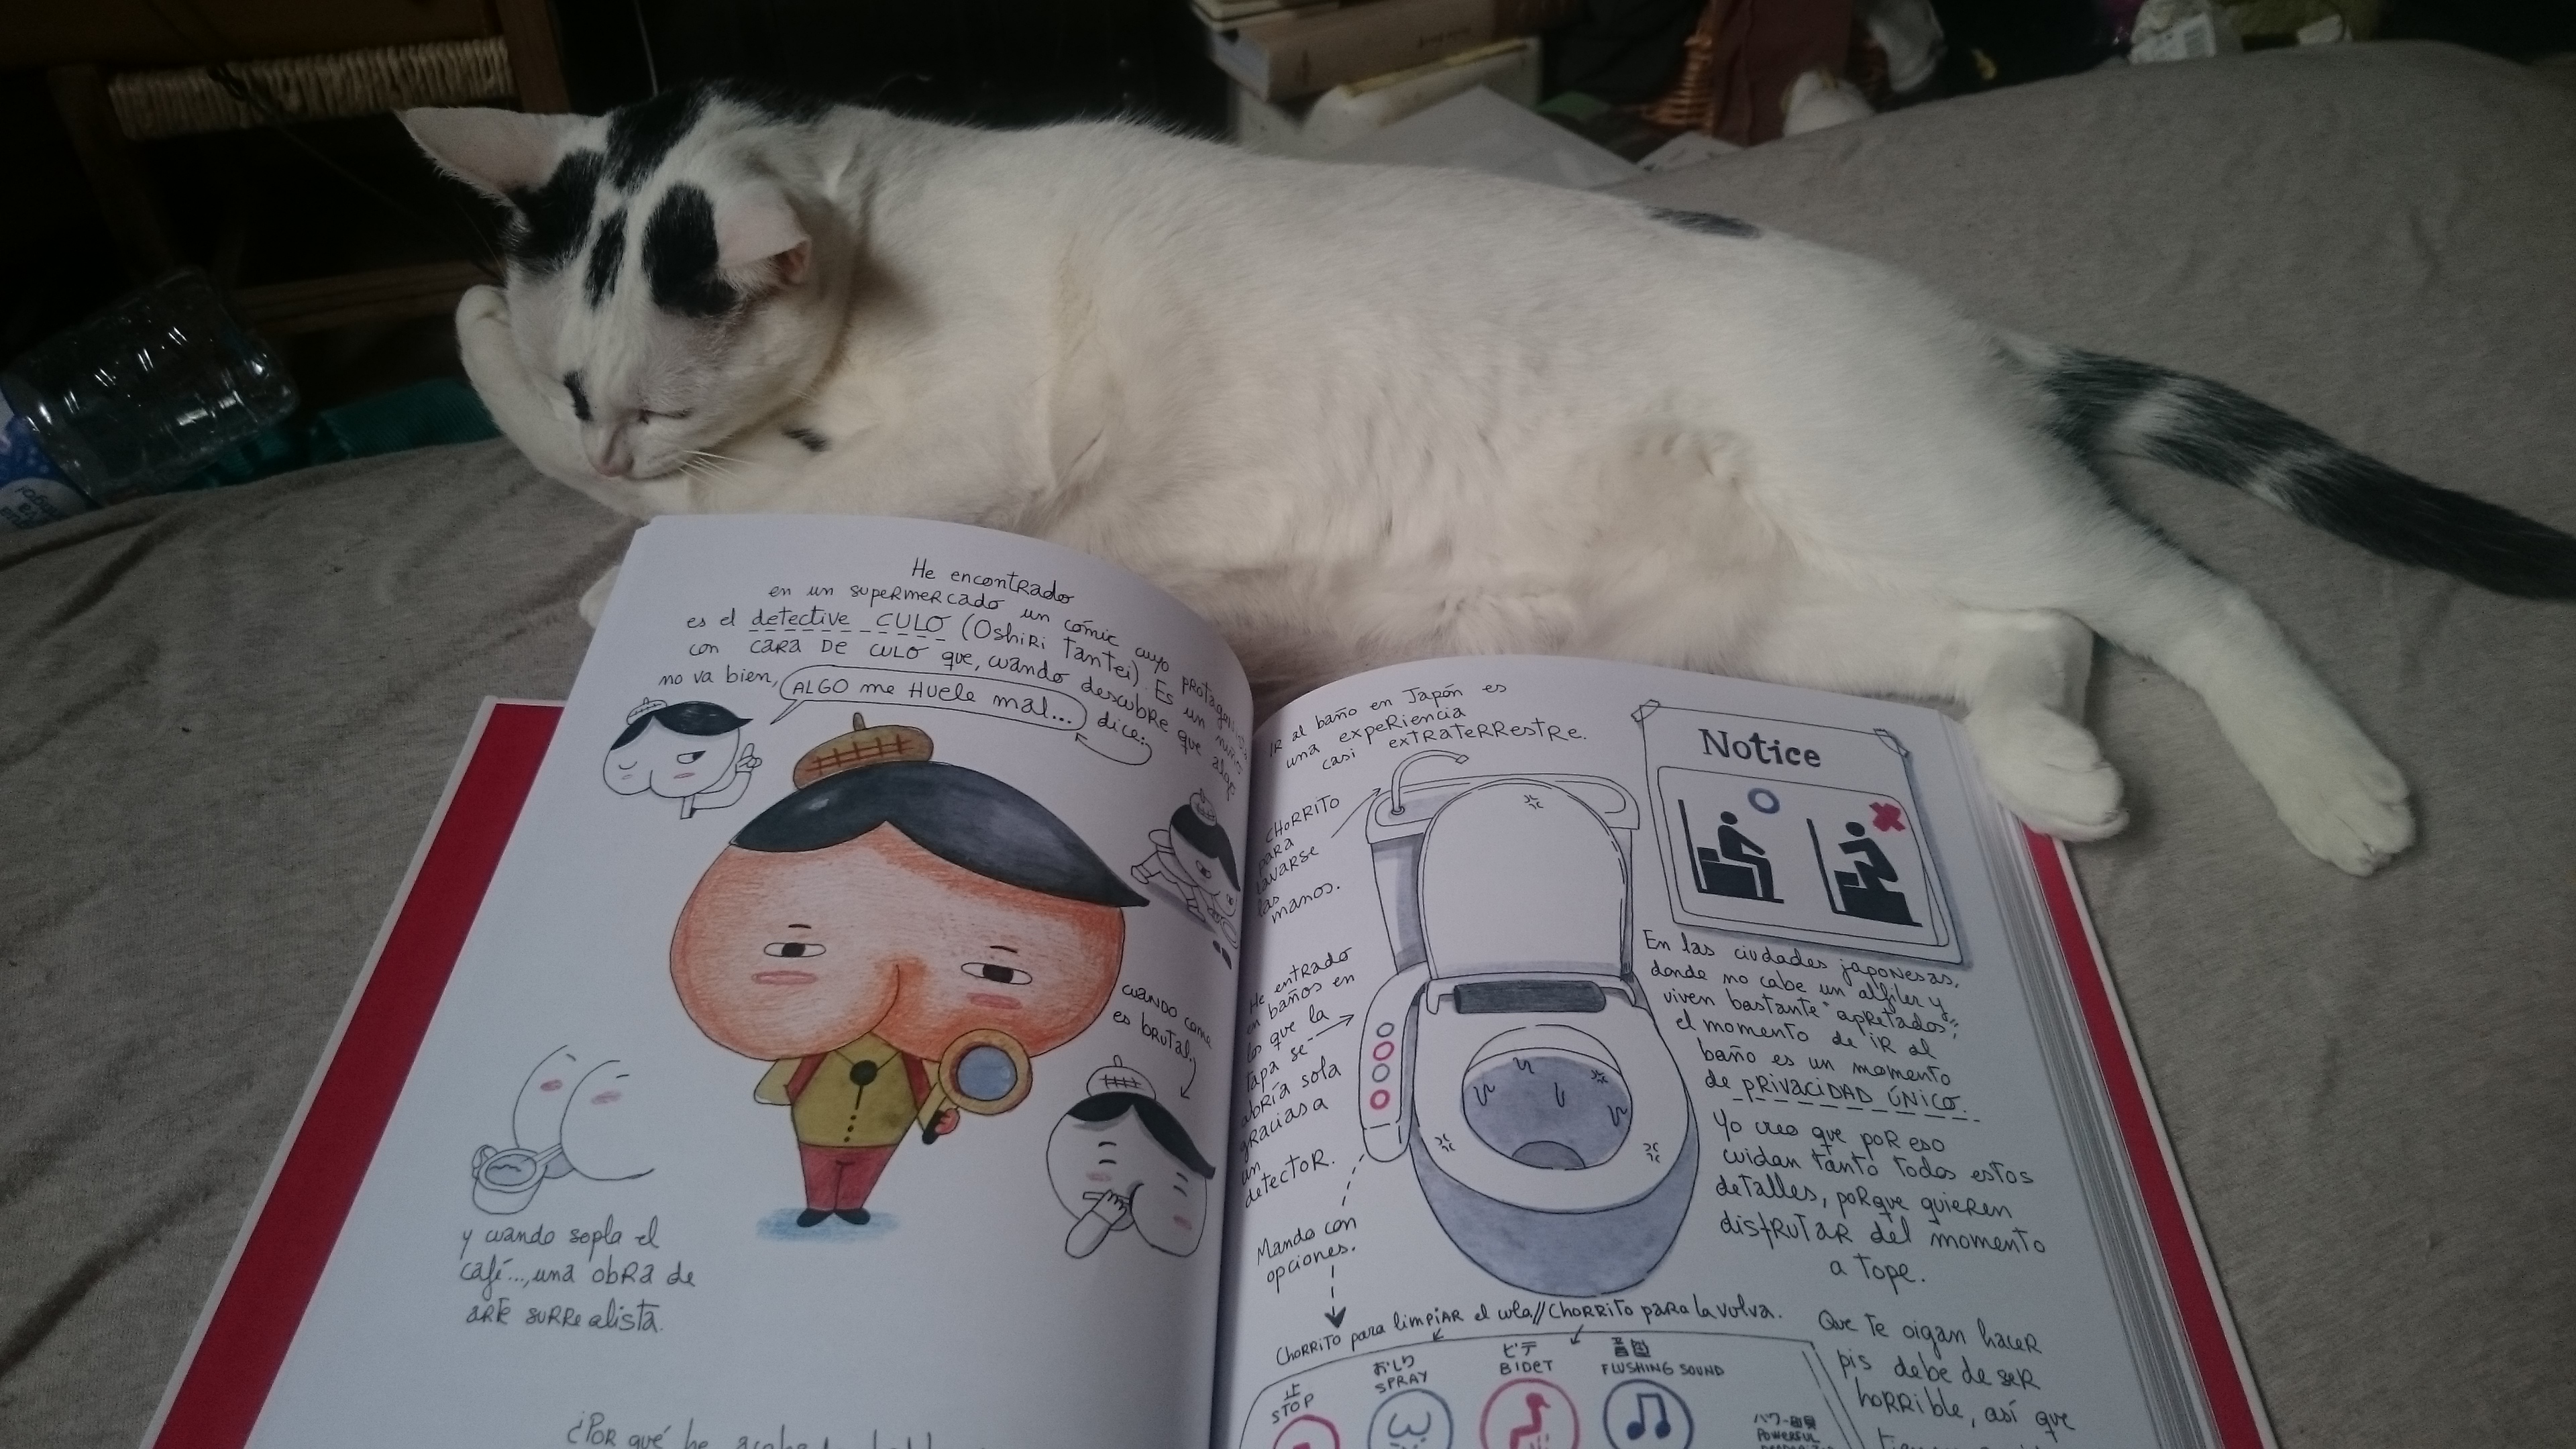 He encontrado
en un supermercado un cómic cuyo protagonista
es el detective CULO (Oshiri Tantei). Es un niño
con cara de culo que, cuando descubre que algo
no va bien,
ALGO me Huele mal...
dice:
cuando come
es brutal.
y cuando sopla el
café..., una obra de
arte surrealista.
¿Por qué he
Ir al baño en Japón es
una experiencia
casi extraterrestre.
Chorrito
para
lavarse
las
manos.
He entrado
en baños en
los que la
tapa se
abría sola
gracias a
un
detector.
Mando con
opciones.
Chorrito para limpiar el culo//Chorrito para la vulva.
止
STOP
おしり
SPRAY
ビデ
BIDET
FLUSHING SOUND
パワー
POWERFUL
Notice
En las ciudades japonesas,
donde no cabe un alfiler y
viven bastante "apretados",
el momento de ir al
baño es un momento
de privacidad único.
Yo creo que por eso
cuidan tanto todos estos
detalles, porque quieren
disfrutar del momento
a tope.
Que te oigan hacer
pis debe de ser
horrible, así que